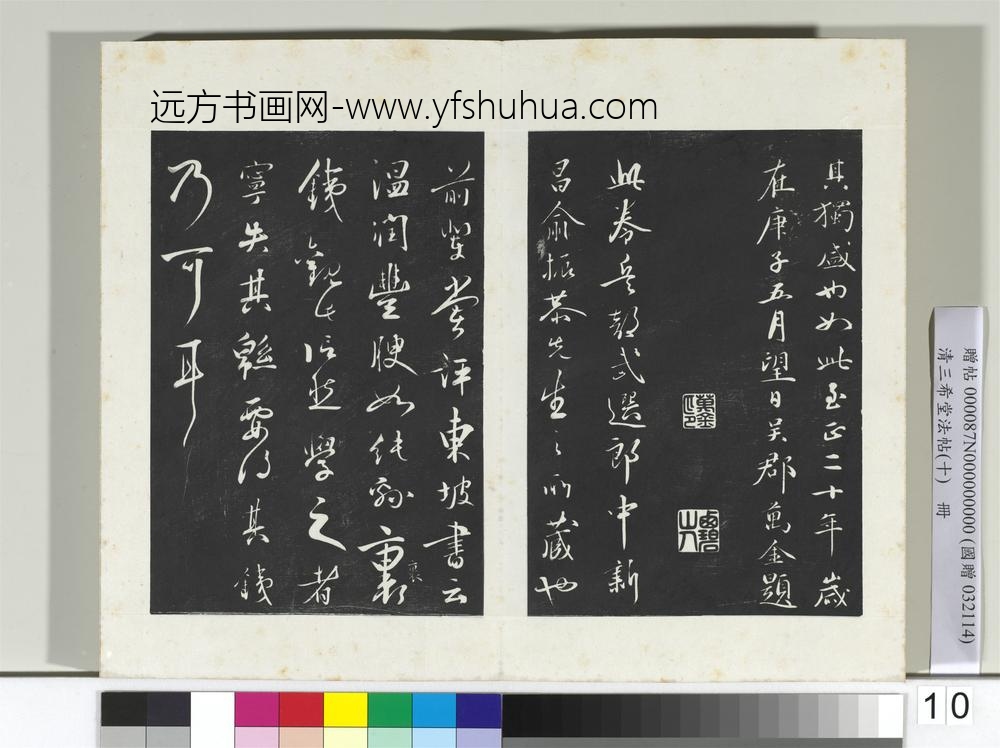 远方书画网-www.yfshuhua.com
其獨盛也如此至正二十年歲
在庚子五月望日吴郡萬金題
此券兵部武選郎中新
昌俞振恭先生之所藏也
前輩嘗評東坡書云
温潤豐腴如純綿裏
鐵觀此信然學之者
寧失其綿要得其鐵
乃可耳
贈帖 000087N000000000 (國贈 032114)
清三希堂法帖(十) 冊
10